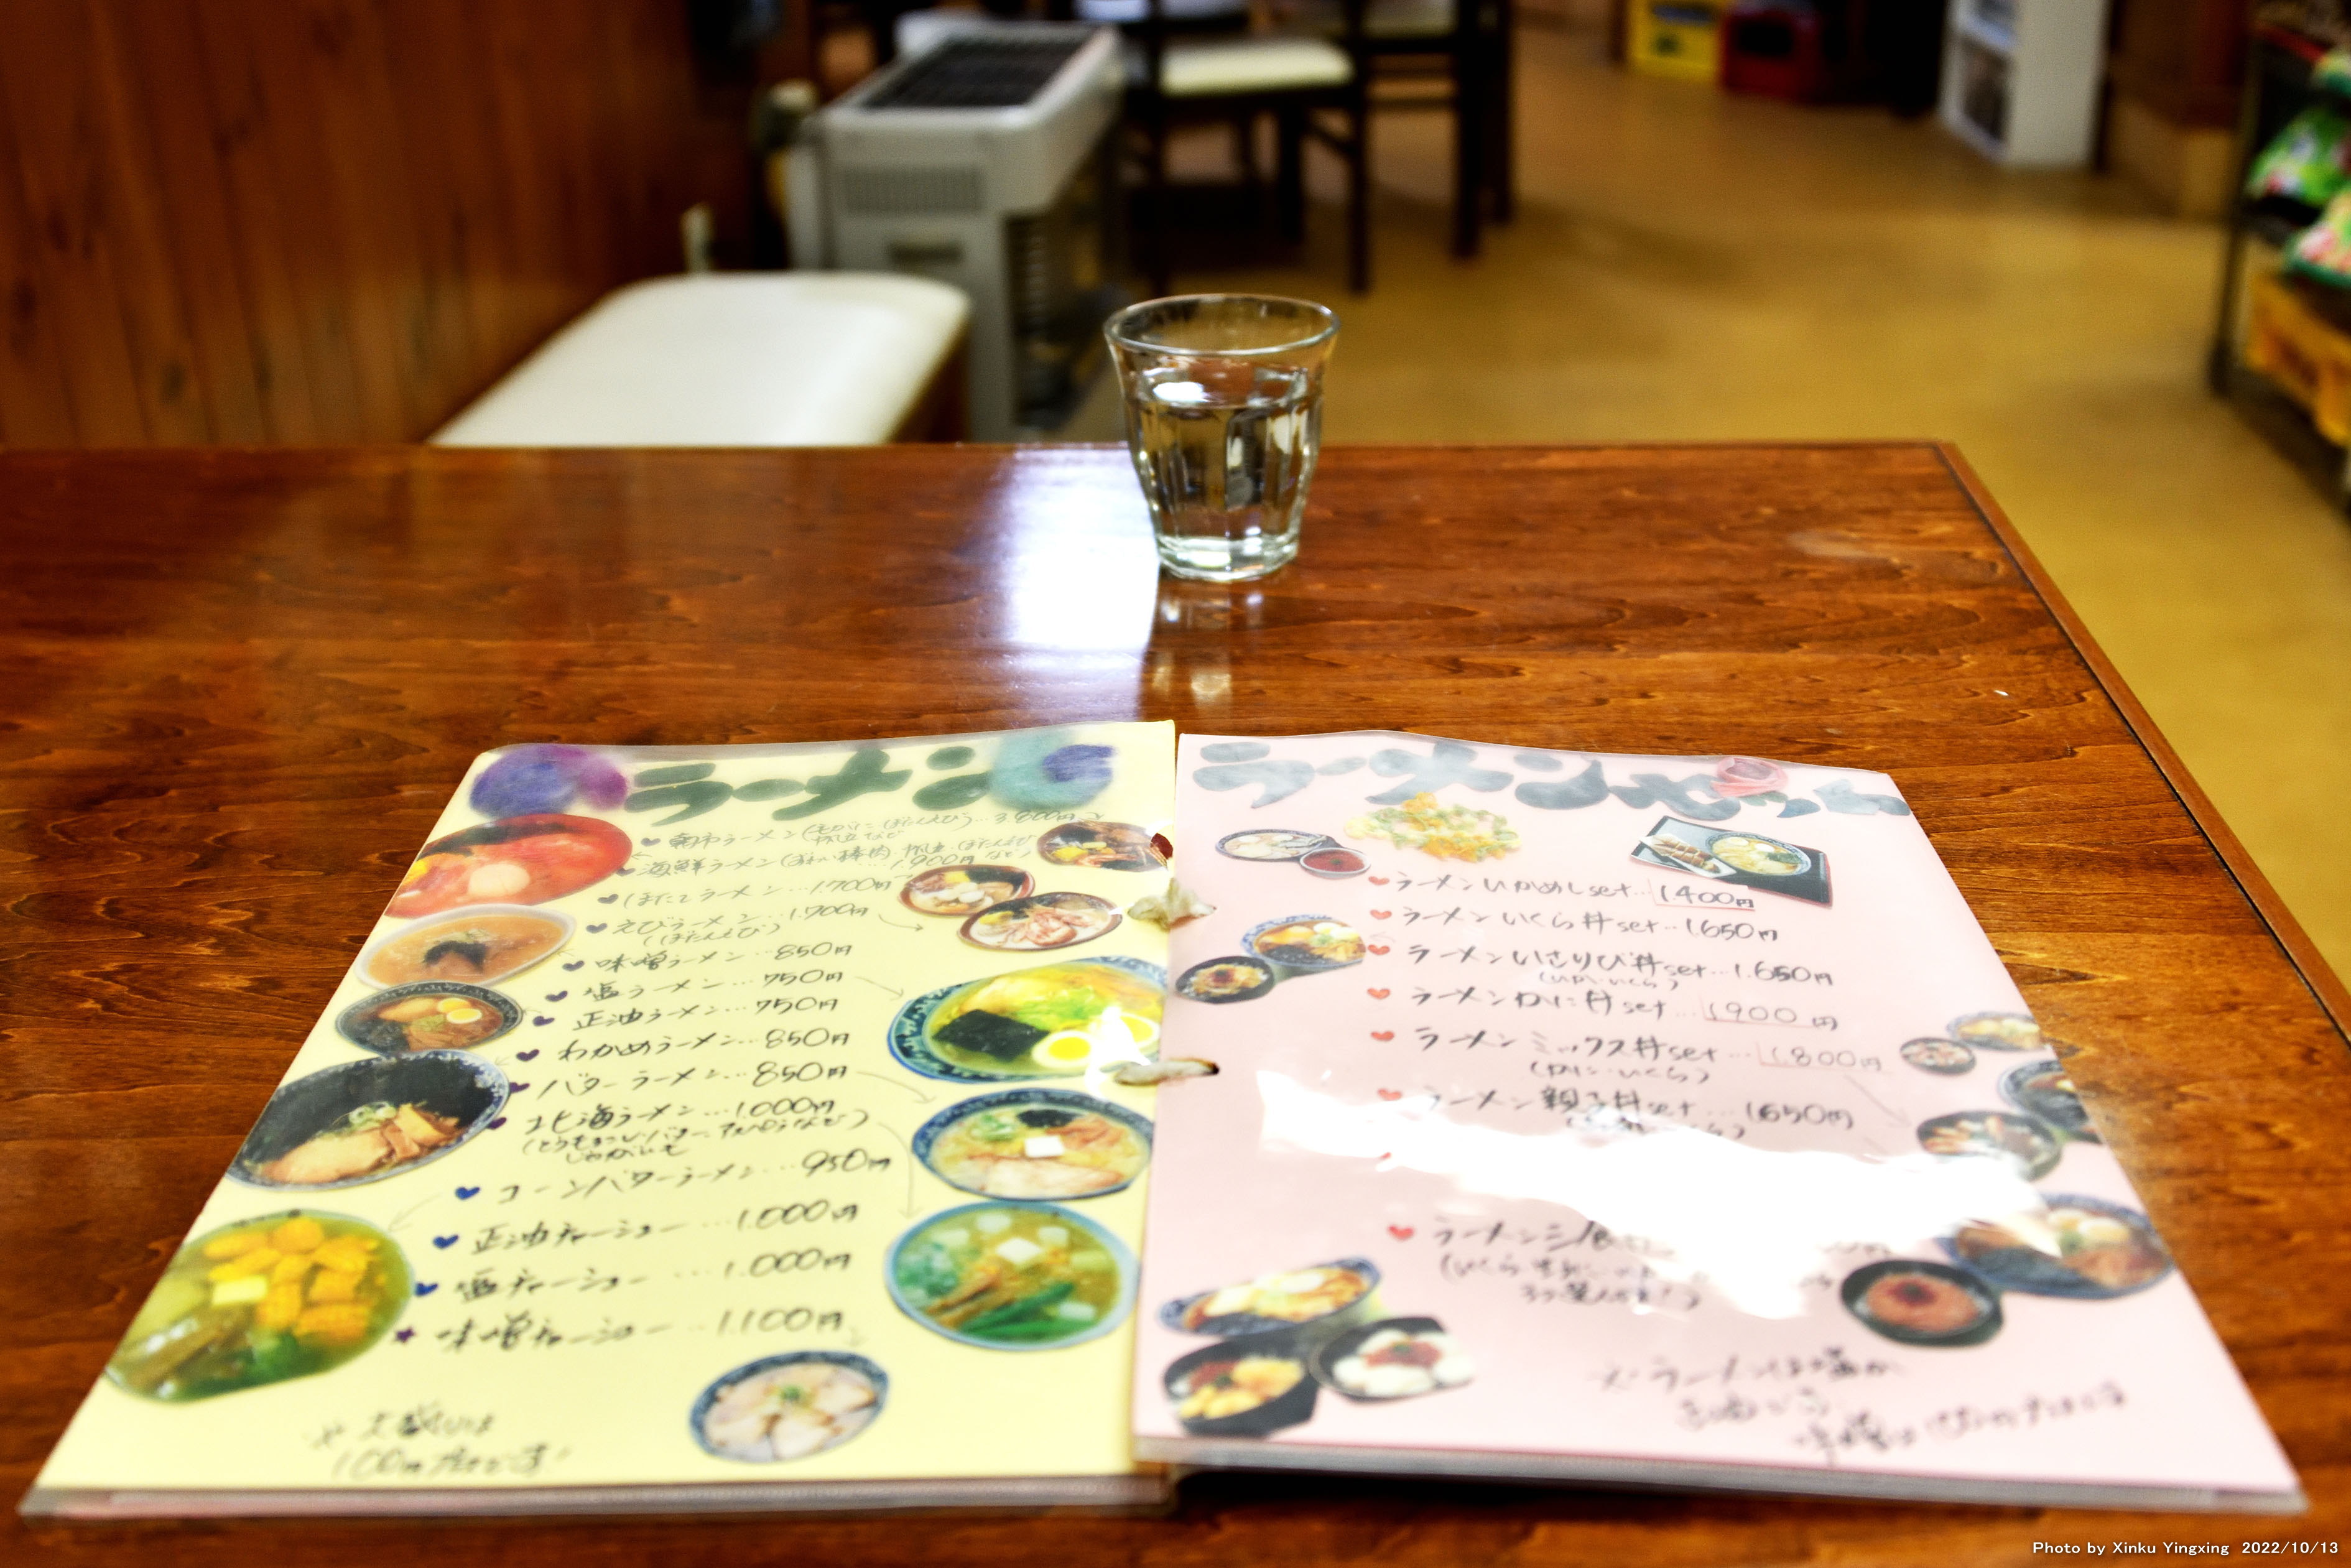 ラーメン
朝市ラーメン(毛がに・ぼたんえび)…3,800円
帆立など
海鮮ラーメン
…1,900円
ほたてラーメン…1,700円
えびラーメン…1,700円
(ぼたんえび)
味噌ラーメン…850円
塩ラーメン…750円
正油ラーメン…750円
わかめラーメン…850円
バターラーメン…850円
北海ラーメン…1,000円
じゃがいも
コーンバターラーメン…950円
正油チャーシュー…1,000円
塩チャーシュー…1,000円
味噌チャーシュー…1,100円
※大盛りは
100円増です
ラーメンセット
ラーメンいかめしset…1,400円
ラーメンいくら丼set…1,650円
ラーメンいさりび丼set…1,650円
(いか・いくら)
ラーメンかに丼set…1,900円
ラーメンミックス丼set…1,800円
(かに・いくら)
ラーメン親子丼set…1,650円
ラーメン三
3つ選べます!)
※ラーメンは塩か
正油です
味噌は
Photo by Xinku Yingxing 2022/10/13